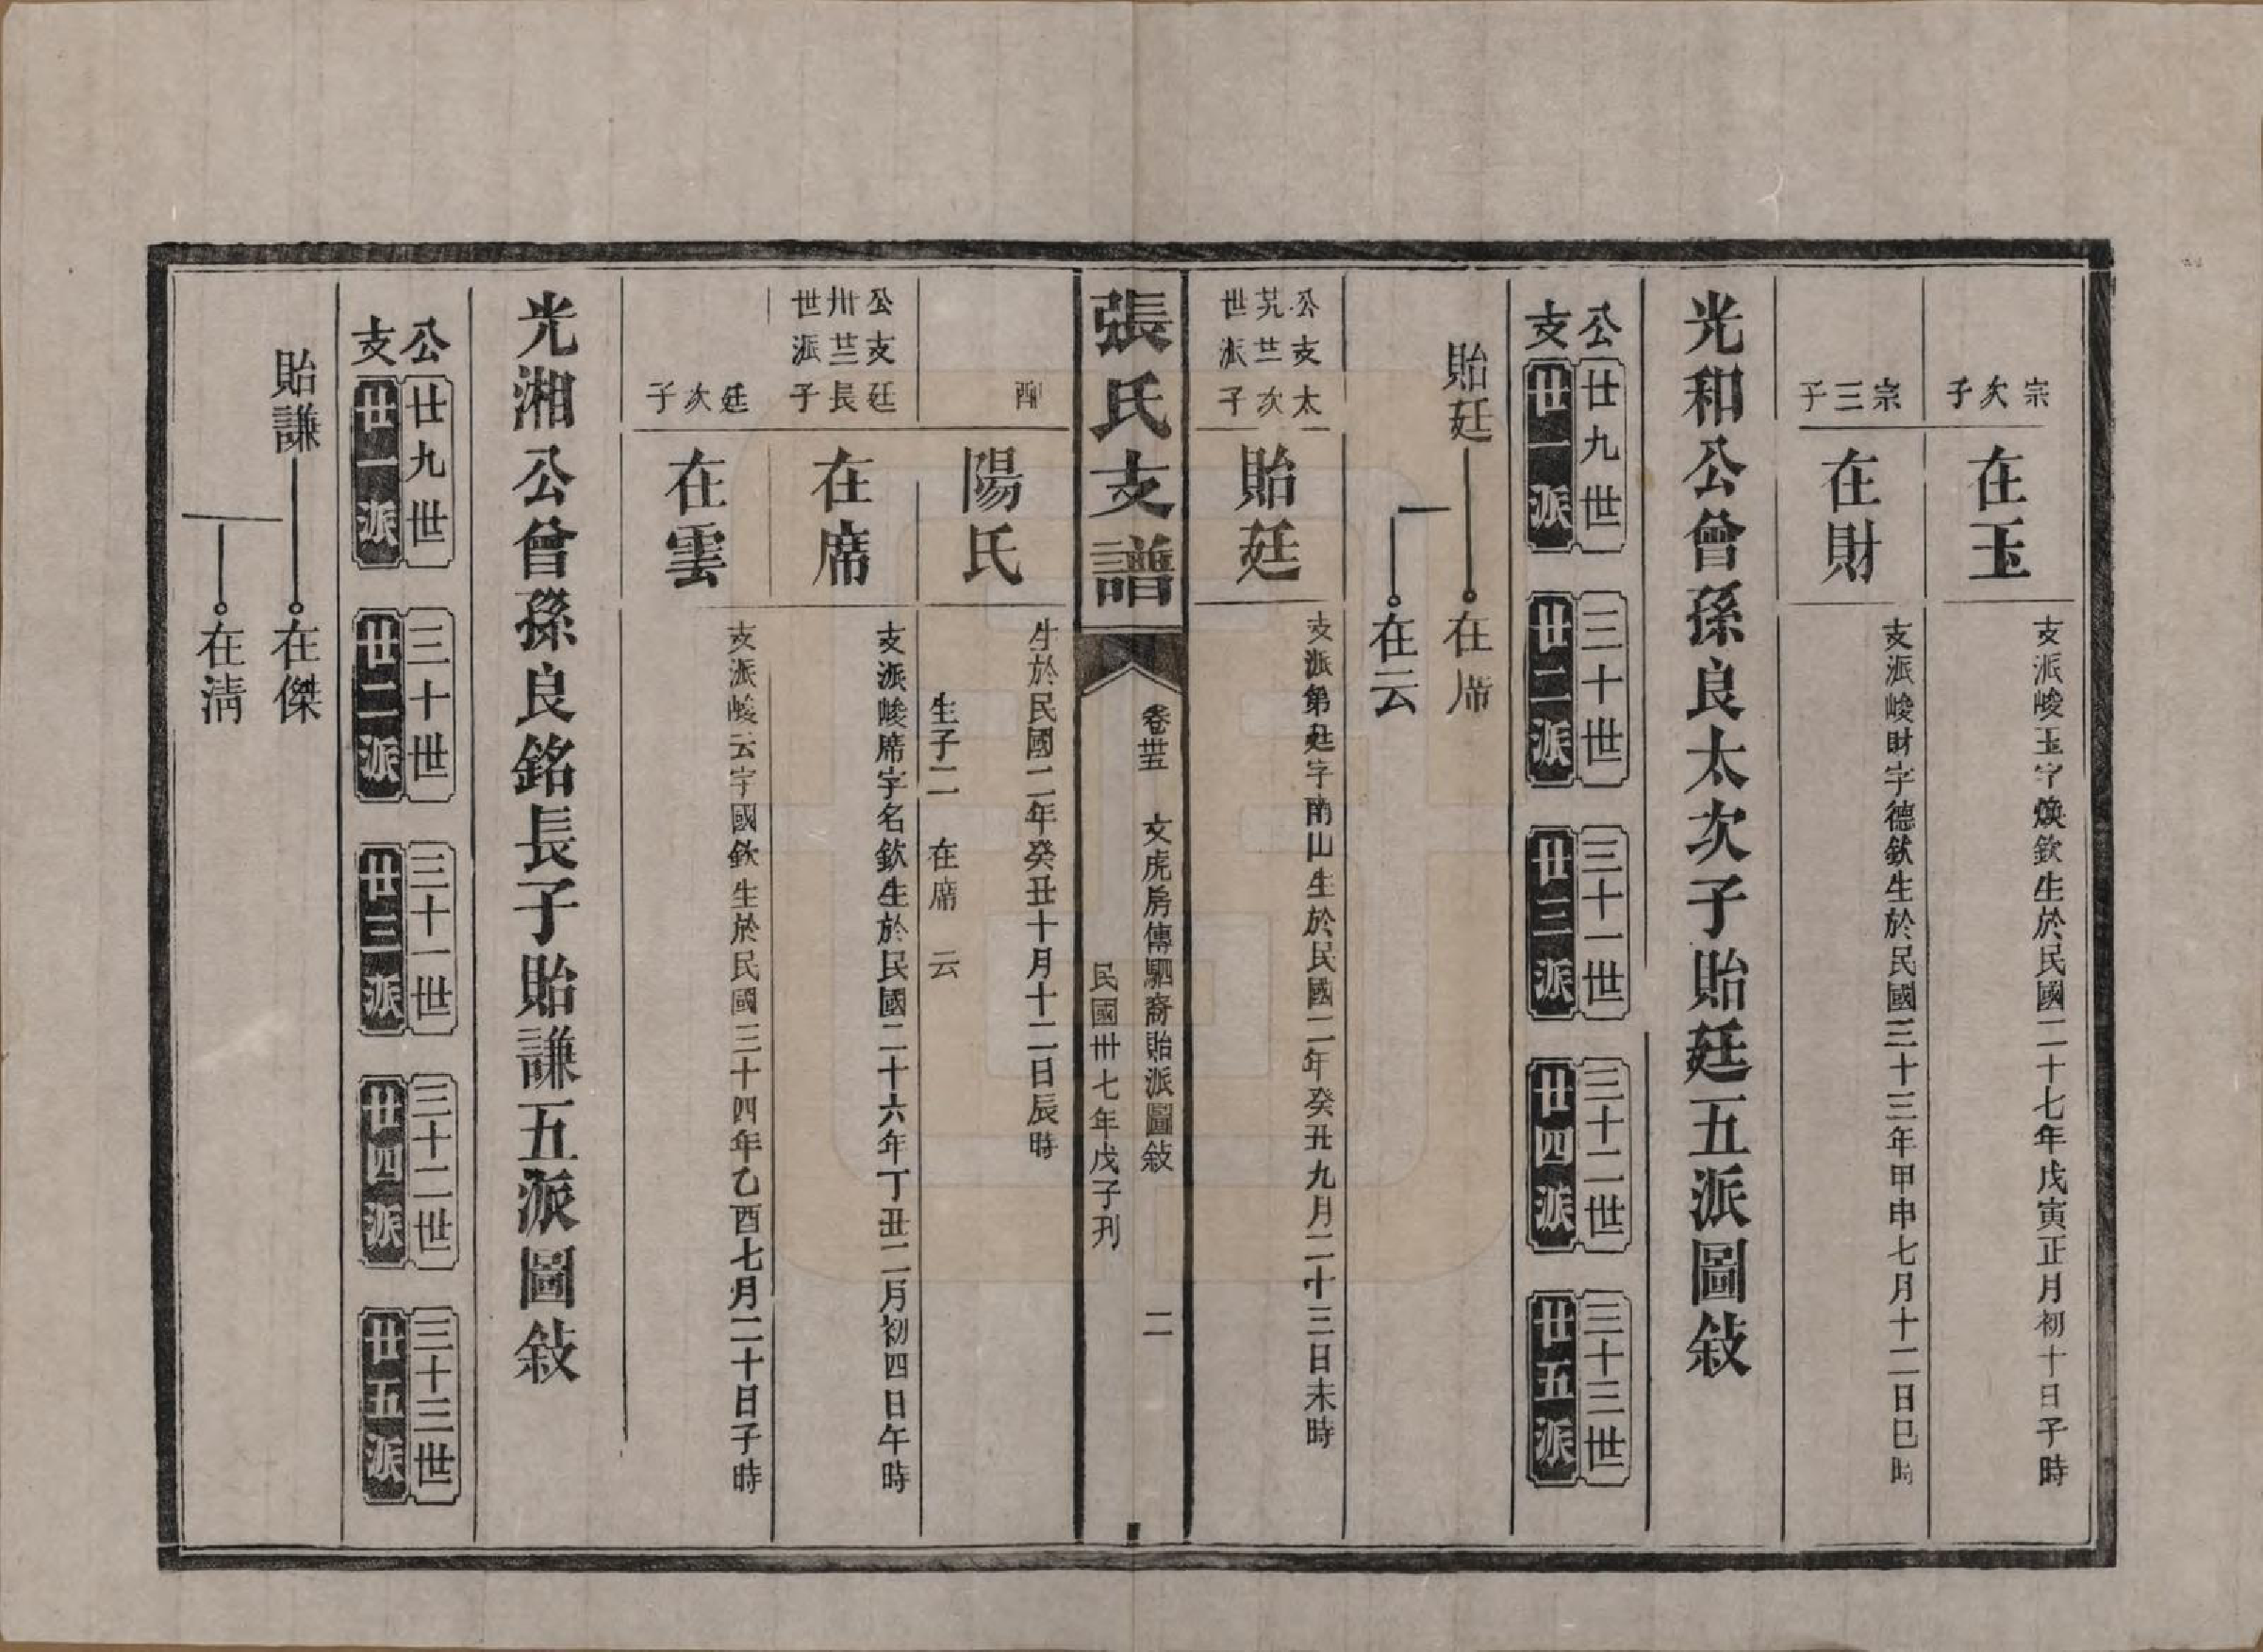 宗次子
在玉
支派峻玉字煥欽生於民國二十七年戊寅正月初十日子時
宗三子
在財
支派峻財字德欽生於民國三十三年甲申七月十二日巳時
光和公曾孫良太次子貽廷五派圖敍
公支
廿九世 廿一派
三十世 廿二派
三十一世 廿三派
三十二世 廿四派
三十三世 廿五派
貽廷
在席
在云
公支太
次
世派子
貽廷
字南山生於民國二年癸丑九月二十三日未時
張氏支譜
卷卅五 文虎房傳駟裔貽派圖敍 二
民國卅七年戊子刋
配
陽氏
生於民國二年癸丑十月十二日辰時
生子二 在席 云
公支廷
卅 長
世派子
在席
支派峻席字名欽生於民國二十六年丁丑二月初四日午時
廷次子
在雲
支派峻云字國欽生於民國三十四年乙酉七月二十日子時
光湘公曾孫良銘長子貽謙五派圖敍
公支
廿九世 廿一派
三十世 廿二派
三十一世 廿三派
三十二世 廿四派
三十三世 廿五派
貽謙
在傑
在淸